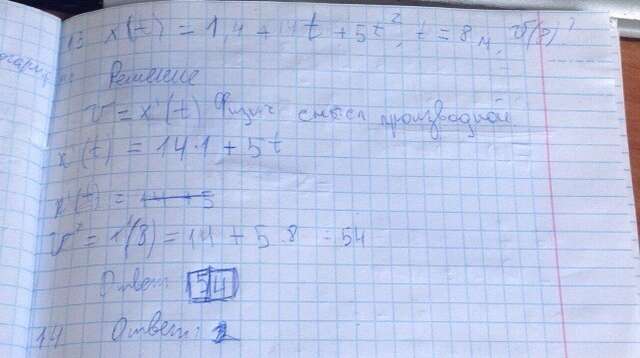 13 x(t) = 1,4 + 14t + 5t², t = 8 м, V(8)?
Решение
V = x'(t) Физич смысл производной
x'(t) = 14·1 + 5t
x'(t) = 14 + 5
V² = 1'(8) = 14 + 5·8 = 54
Ответ: 54
14 Ответ: 2